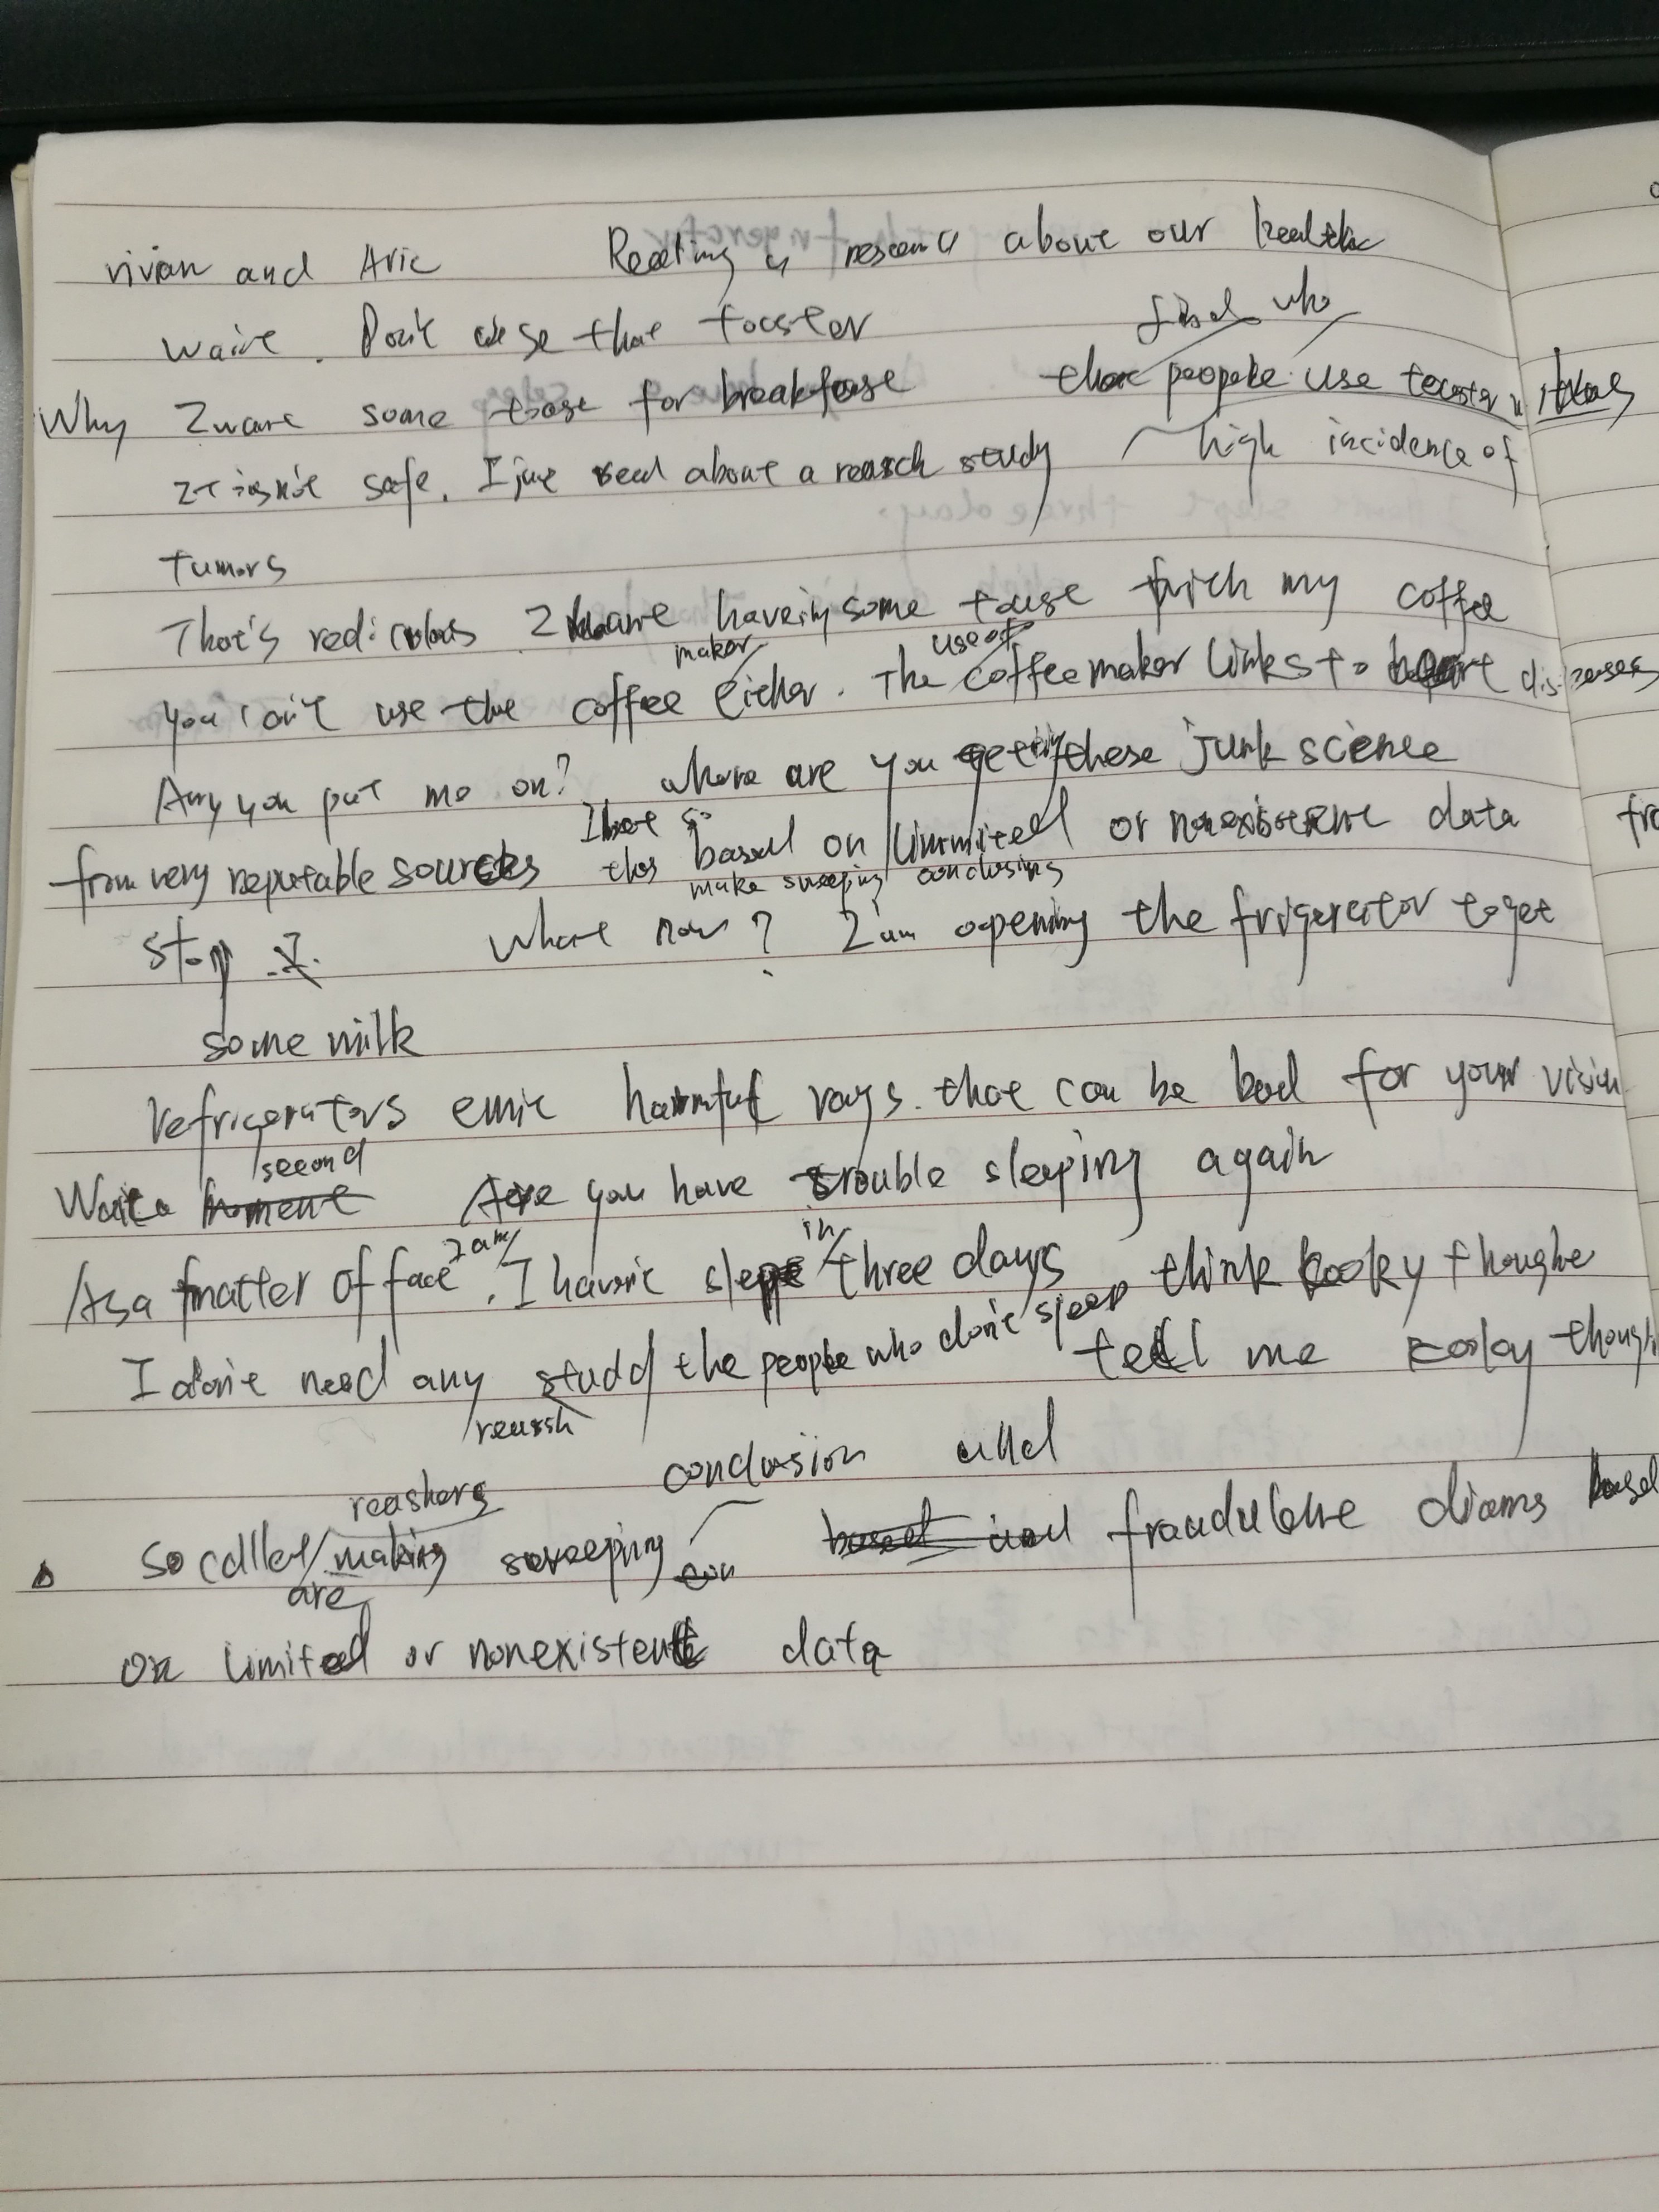 vivian and Aric Reading a research about our health
wait. Don't use that toaster find who
Why I want some toast for breakfast that people use toaster
It isn't safe. I just read about a reasch study high incidence of
tumors
That's rediculous I want having some toast with my coffee
maker use of
you can't use the coffee either. The coffee maker links to heart diseases
Any you put me on? where are you getting these junk science
from very reputable sources this based on limmited or nonexistent data fro
make sweeping conclusing
stop What now? I am opening the frigerator to get
some milk
refrigerators emit harmful rays. that can be bad for your vision
second
Wait a moment Are you have trouble sleeping again
I am in
As a matter of fact. I haven't slept three days think kooky thought
I don't need any studd the people who don't sleep tell me kooky though
reassh
conclusion and
reashers
so called making sweeping con based fraudulent claims based
are
on limited or nonexistent data